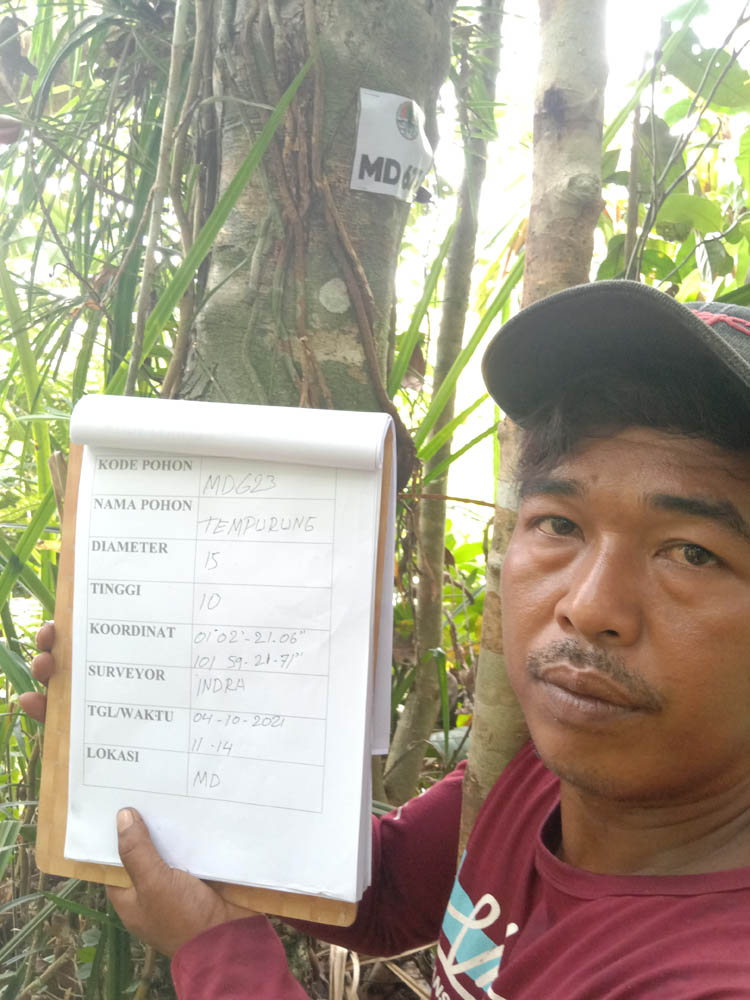 MD6
KODE POHON MDG23
NAMA POHON TEMPURUNG
DIAMETER 15
TINGGI 10
KOORDINAT 01°02'-21.06"
101 59-21-71"
SURVEYOR INDRA
TGL/WAKTU 04-10-2021
11-14
LOKASI MD